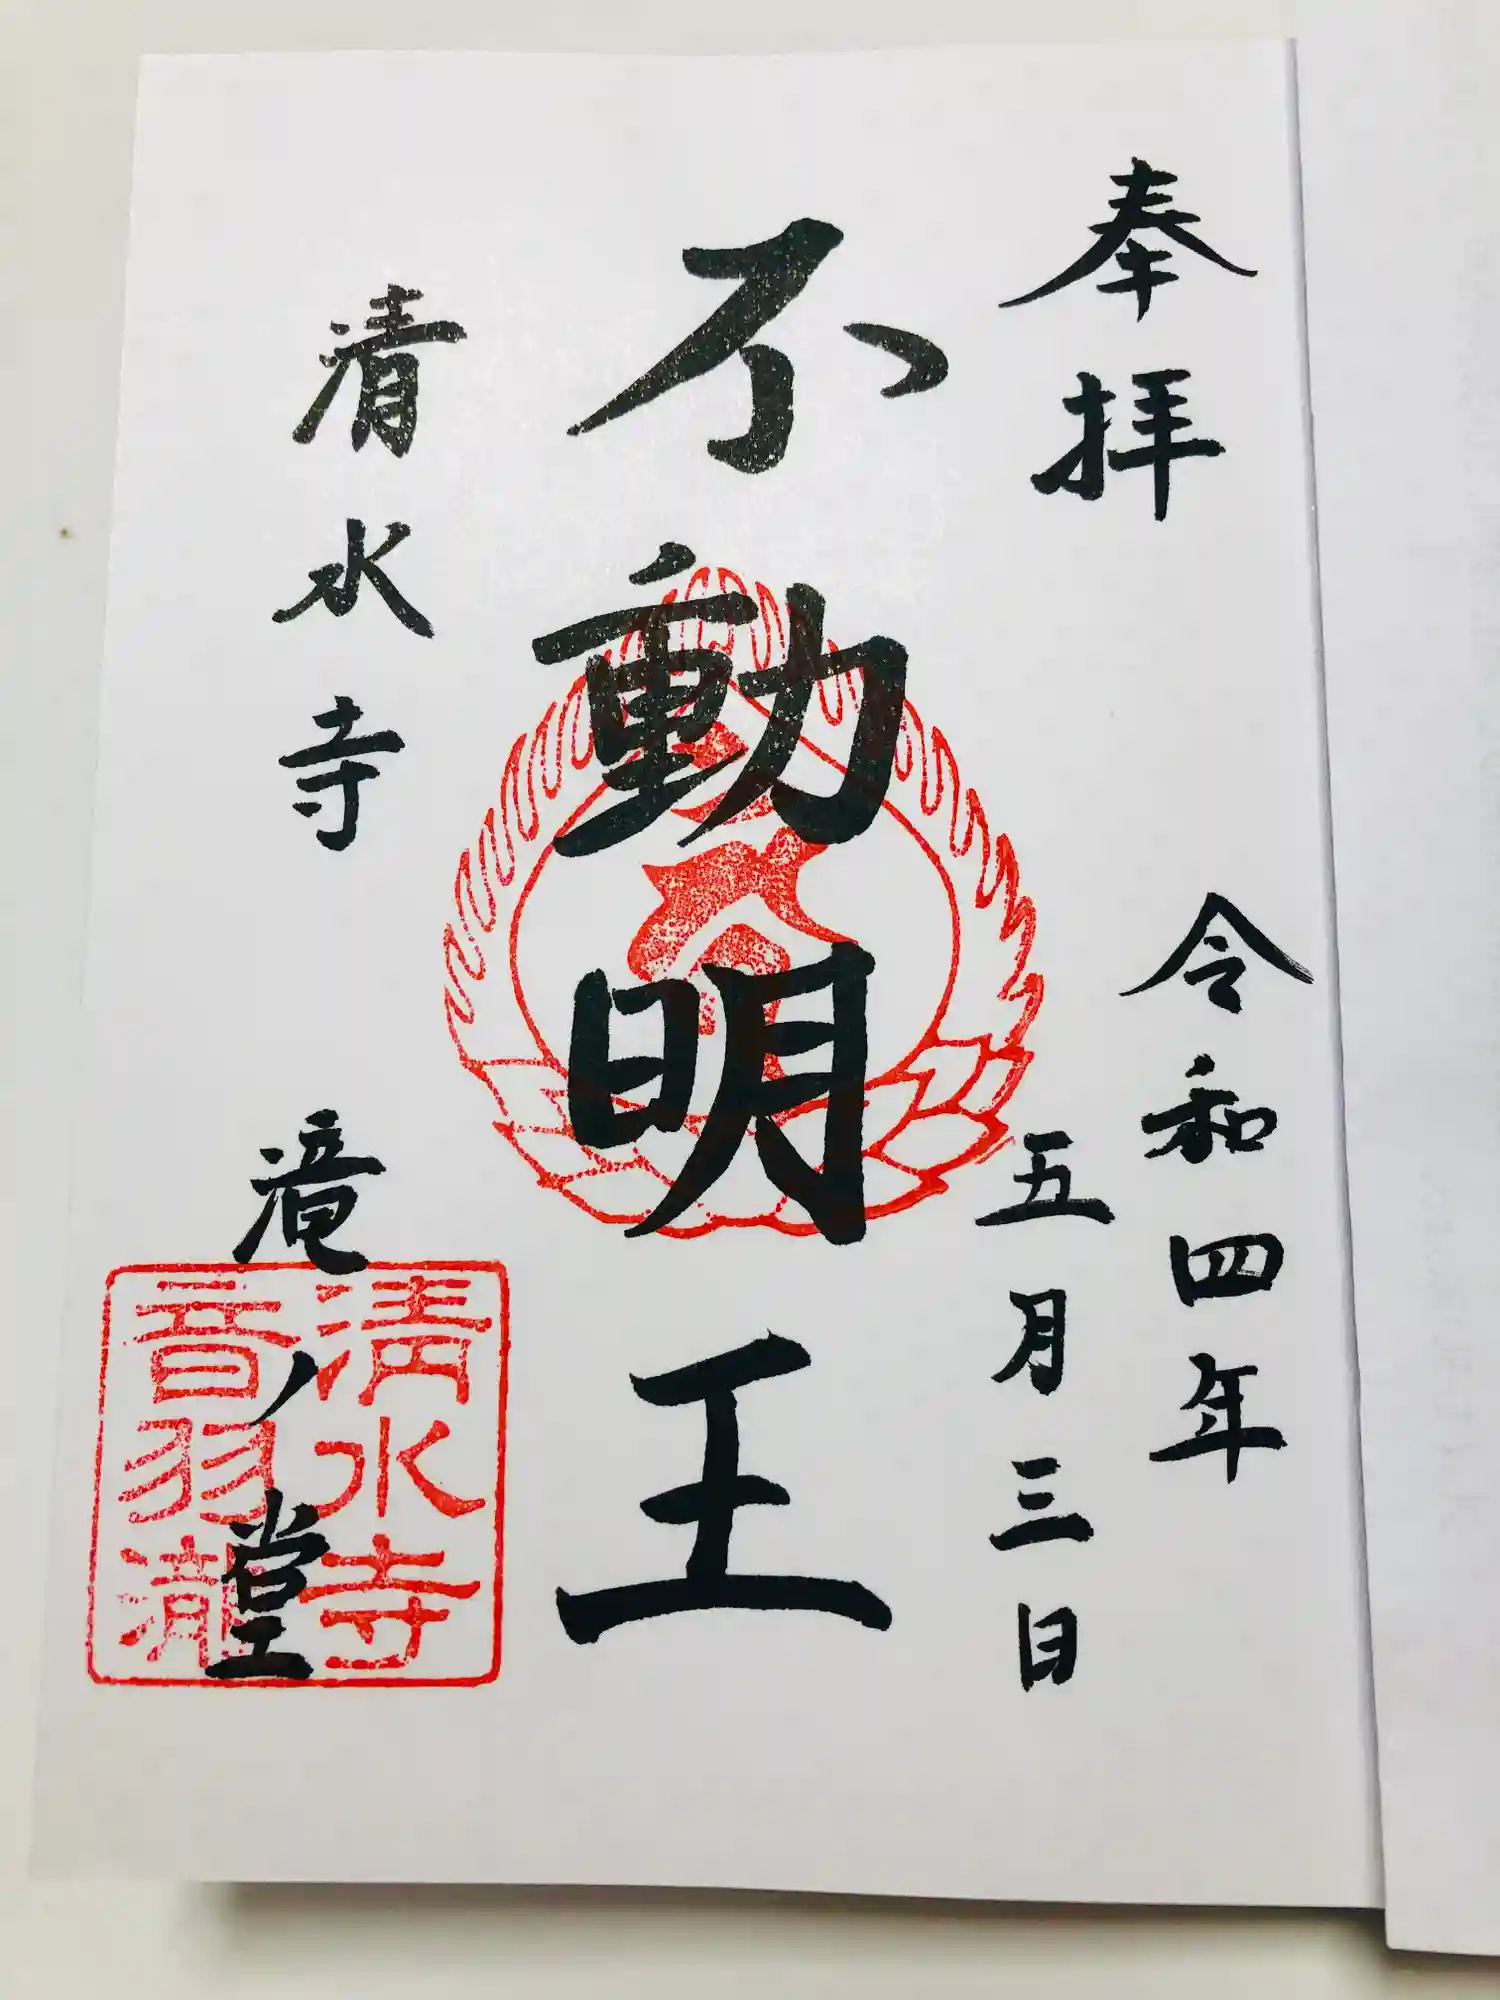 奉拝
令和四年
五月三日
不動明王
清水寺 滝ノ堂
清水寺
音羽瀧